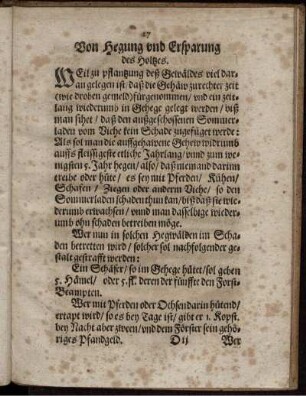 27
Von Hegung vnd Ersparung
des Holtzes.
WEil zu pflantzung deß Gewäldes viel dar-
an gelegen ist / daß die Gehäw zu rechter zeit
(wie droben gemeld) fürgenommen / vnd ein zeit-
lang wiederumb in Gehege gelegt werden / biß
man sihet / daß den außgeschossenen Sommer-
laden vom Viehe kein Schade zugefüget werde:
Als sol man die auffgehawene Gehew widrumb
auffs fleissigeste etliche Jahrlang / vnnd zum we-
nigsten 5. Jahr hegen / also / daß niemand darinn
treibe oder hüte / es sey mit Pferden / Kühen /
Schafen / Ziegen oder anderm Viehe / so den
Sommerladen schaden thun kan / biß daß sie wie-
derumb erwachsen / vnnd man dasselbige wieder-
umb ohn schaden betreiben möge.
Wer nun in solchen Hegwälden im Scha-
den betretten wird / solcher sol nachfolgender ge-
stalt gestrafft werden:
Ein Schäfer / so im Gehege hütet / sol geben
5. Hämel / oder 5. fl. deren der fünffte den Forst-
Beampten.
Wer mit Pferden oder Ochsen darin hütend /
ertapt wird / so es bey Tage ist / gibt er 1. Kopst.
bey Nacht aber zween / vnd dem Förster sein gehö-
riges Pfandgeld. D ij Wer